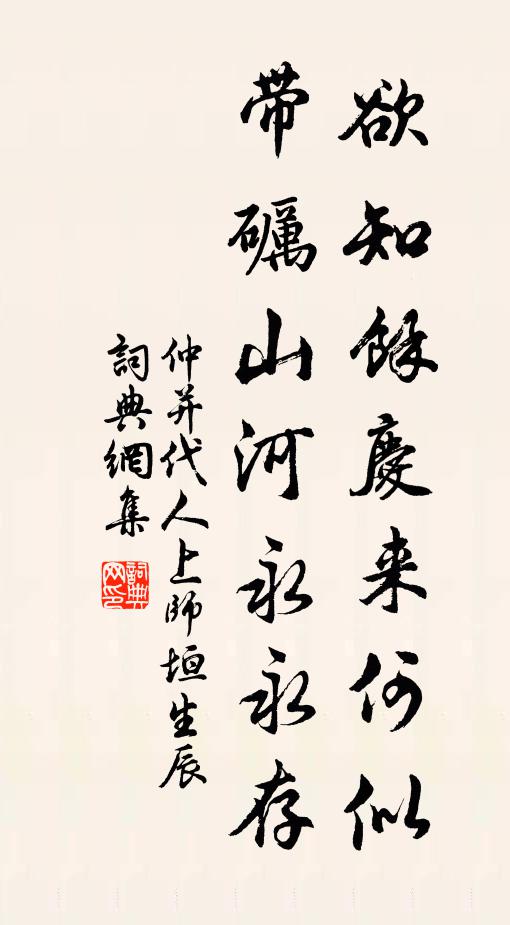 欲知餘慶来何似
带礪山河永永存
仲并代人上師垣生辰
詞典網集
詞典网印